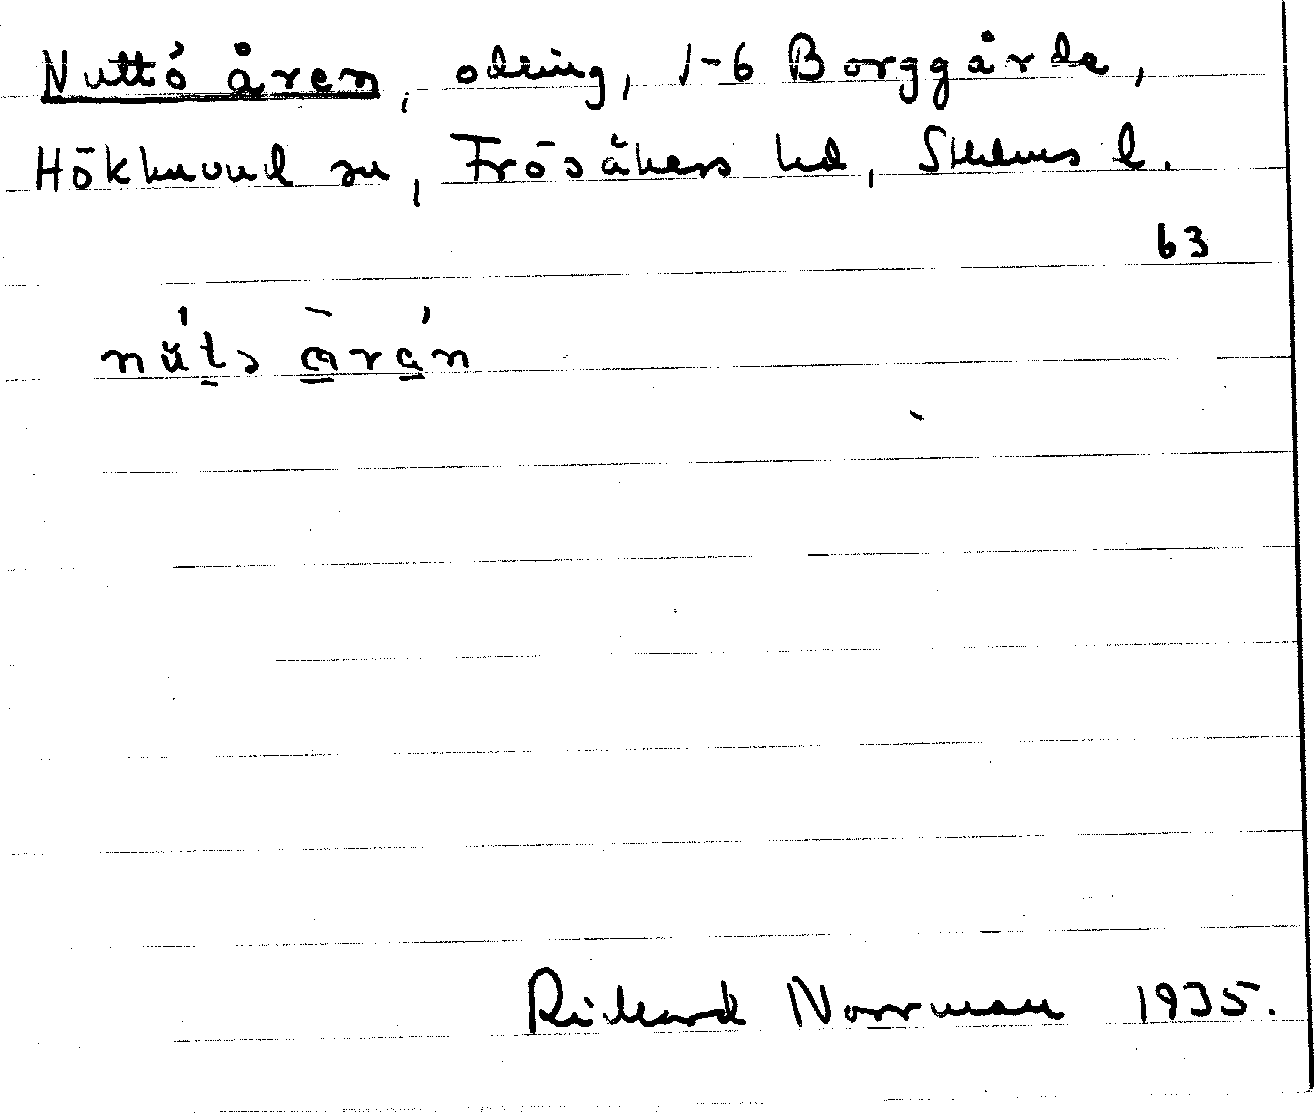 Nuttö åren, odling, 1-6 Borggårde,
Hökhuvud sn, Frösåkers hd, Sthlms l.
63
Rickard Norrman 1935.